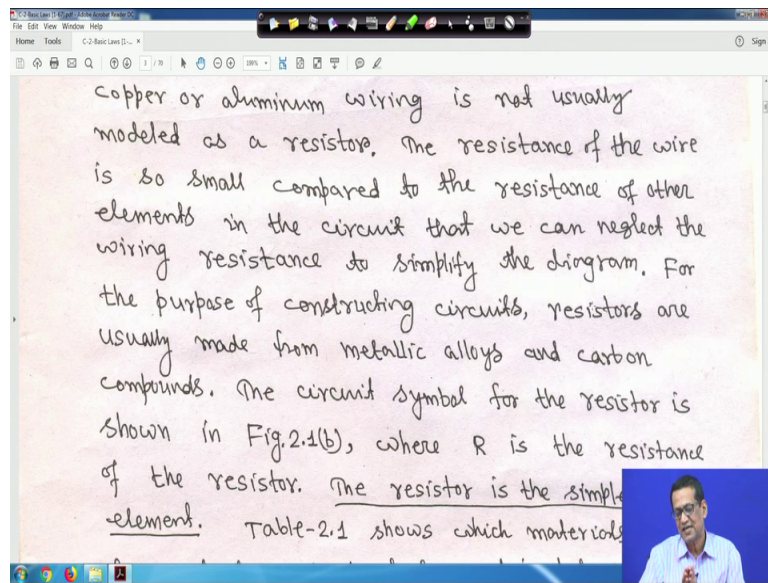 C-2-Basic Laws [1-67].pdf - Adobe Acrobat Reader DC
File Edit View Window Help
Home Tools C-2-Basic Laws [1-... × Sign
3 / 70 189%
copper or aluminum wiring is not usually
modeled as a resistor. The resistance of the wire
is so small compared to the resistance of other
elements in the circuit that we can neglect the
wiring resistance to simplify the diagram. For
the purpose of constructing circuits, resistors are
usually made from metallic alloys and carbon
compounds. The circuit symbol for the resistor is
shown in Fig.2.1(b), where R is the resistance
of the resistor. The resistor is the simple
element. Table-2.1 shows which materials